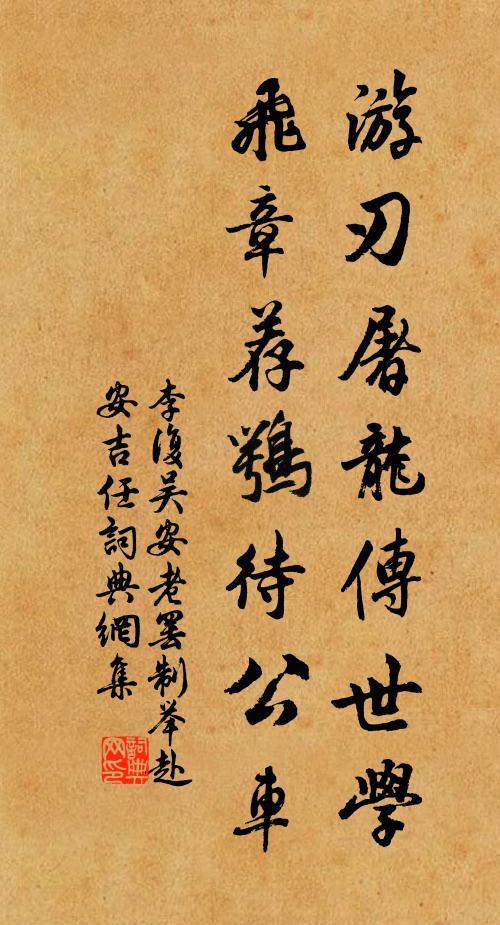 游刃屠龍傳世學
飛章荐鶚待公車
李復吴安老罢制举赴
安吉任詞典網集
詞典网印